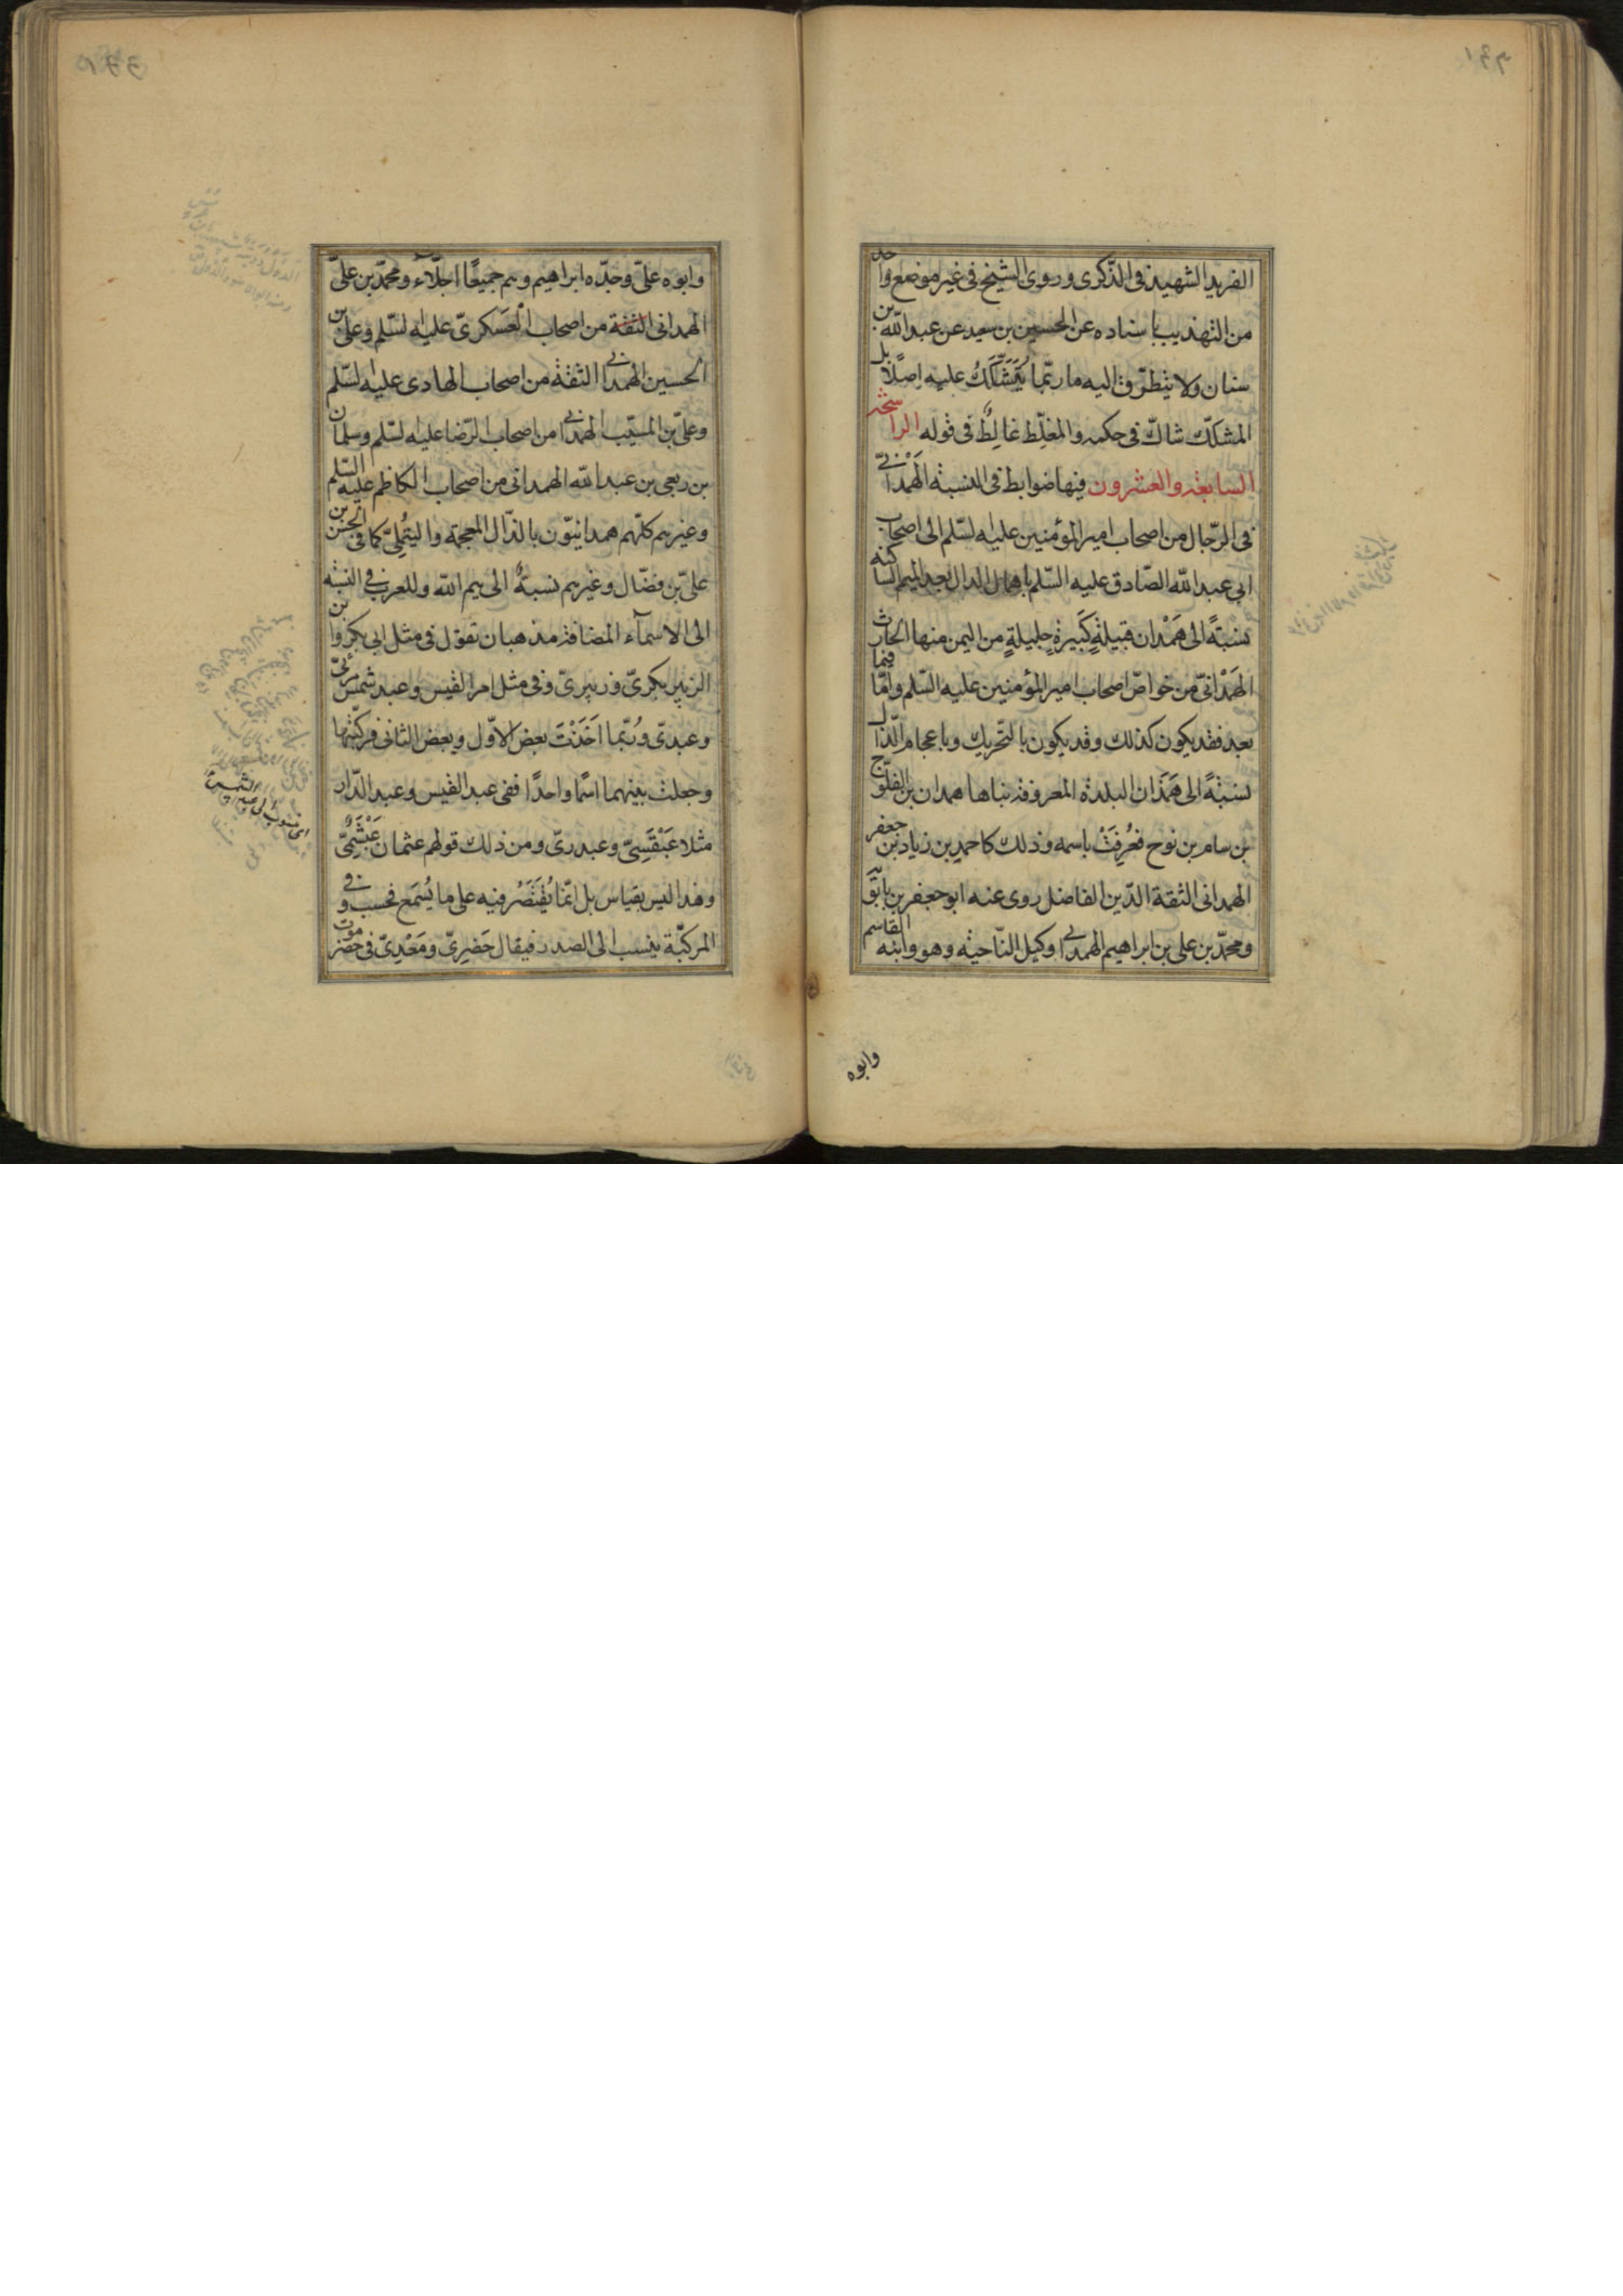 الفريد الشهيد في الذّكرى وروى الشيخ في غير موضع واحد
من التهذيب باسناده عن الحسين بن سعيد عن عبد الله بن
سنان ولا يتطرّق اليه ما ربّما يُتَشَكَّكُ عليه اصلًا بل
المشكّك شاكّ في حكمه والمغلِّط غالِطٌ في قوله الراشحة
السابعة والعشرون فيها ضوابط في النسبة الهَمْدانيّ
في الرّجال من اصحاب امير المؤمنين عليه السّلم الى اصحاب
ابي عبد الله الصّادق عليه السّلم باهمال الدال بعد الميم الساكنه
نسبَةً الى هَمْدان قبيلةٍ كَبيرةٍ جليلةٍ من اليمن منها الحارث
الهَمْدانيّ من خواصّ اصحاب امير المؤمنين عليه السّلم وامّا فيما
بعد فقد يكون كذلك وقد يكون بالتّحريك وباعجام الذّال
نسبَةً الى هَمَذان البلدة المعروفة بناها همدان بن الفلّوج
بن سام بن نوح فعُرِفَتْ باسمه وذلك كاحمد بن زياد بن جعفر
الهمداني الثقة الدّين الفاضل روى عنه ابو جعفر بن بابَوَيه
ومحمّد بن علي بن ابراهيم الهمداني وكيل النّاحية وهو وابنه القاسم
وابوه
وابوه عليّ وجدّه ابراهيم وهم جميعًا اجلّاء ومحمّد بن عليّ
الهمداني الثقة من اصحاب العَسكريّ عليه السّلم وعلي بن
الحسين الهمداني الثقة من اصحاب الهادى عليه السّلم
وعليّ بن المسيّب الهمداني من اصحاب الرّضا عليه السّلم وسلمان
بن ربعي بن عبد الله الهمداني من اصحاب الكاظم عليه السّلم
وغيرهم كلّهم همدانيّون بالذّال المعجمة والتيُملِيّ كما في الحسن بن
عليّ بن فضّال وغيرهم نسبةٌ الى تيم الله وللعرب في النسبة
الى الاسمآء المضافة مذهبان تقول في مثل ابي بكر وابن
الزبير بكريّ وزبيريّ وفي مثل امرا القيس وعبد شمس مرئيّ
وعبديّ ورُبّما اَخَذْتَ بعض الاوّل وبعض الثاني فركّبتها
وجعلت بينهما اسمًا واحدًا ففي عبد القيس وعبد الدّار
مثلا عَبْقَسِيّ وعبدريّ ومن ذلك قولهم عثمان عَبْشَمِيٌّ
وهذا ليس بقياس بل انّما يُقْتَصَرُ فيه على ما يُسمَع فحسب وفي
المركبّة ينسب الى الصدر فيقال حَضرِيّ ومَعْدِيّ في حضرموت